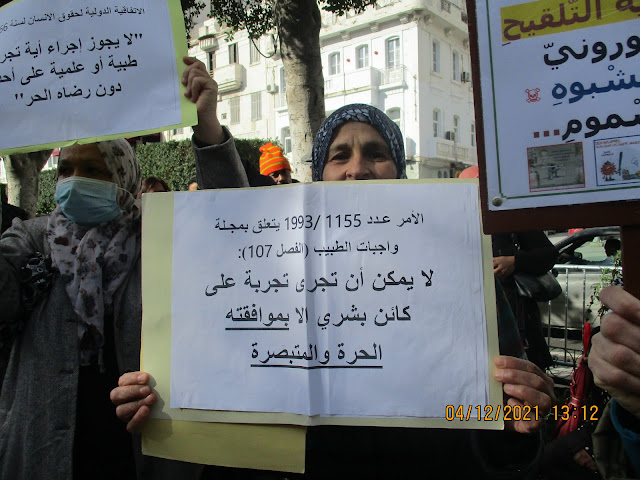 الاتفاقية الدولية لحقوق الانسان لسنة
"لا يجوز إجراء أية
طبية أو علمية على
دون رضاه الحر"
التّلقيح
الأمر عدد 1155 /1993 يتعلق بمجلة
واجبات الطبيب (الفصل 107):
لا يمكن أن تجرى تجربة على
كائن بشري الا بموافقته
الحرة والمتبصرة
04/12/2021 13:12